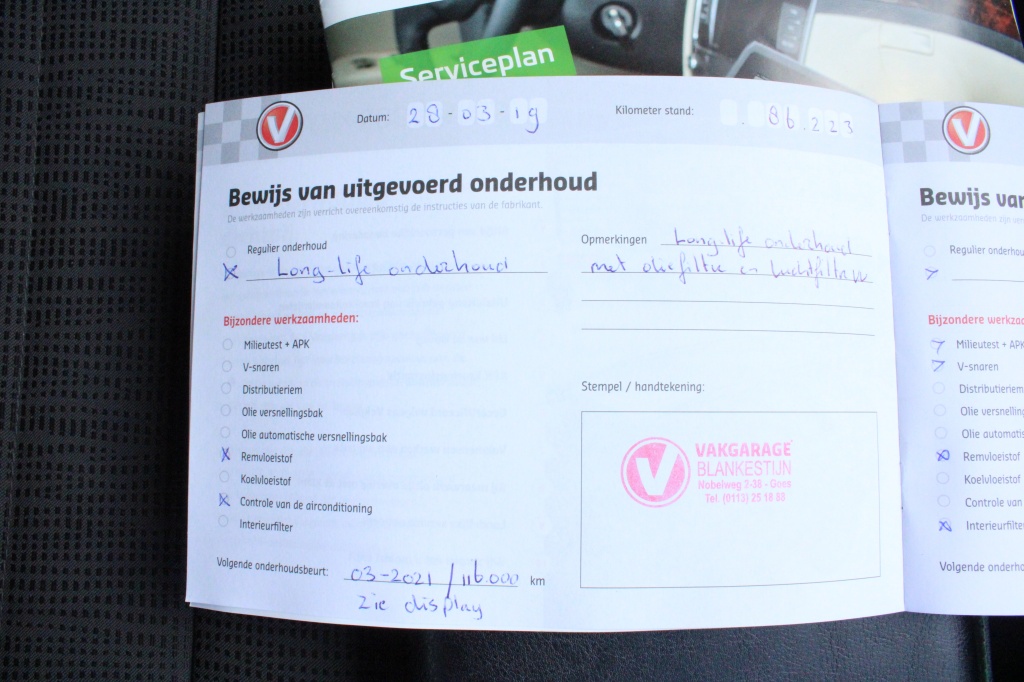 Serviceplan
V
Datum: 28-03-19
Kilometer stand: 86.223
Bewijs van uitgevoerd onderhoud
De werkzaamheden zijn verricht overeenkomstig de instructies van de fabrikant.
Regulier onderhoud
X Long-life onderhoud
Opmerkingen Long-life onderhoud
met oliefilter en luchtfilter
Bijzondere werkzaamheden:
Milieutest + APK
V-snaren
Distributieriem
Olie versnellingsbak
Olie automatische versnellingsbak
X Remvloeistof
Koelvloeistof
X Controle van de airconditioning
Interieurfilter
Volgende onderhoudsbeurt: 03-2021 / 116.000 km
Zie display
Stempel / handtekening:
V VAKGARAGE
BLANKESTIJN
Nobelweg 7-38 - Goes
Tel. (0113) 25 18 83
V
Bewijs van
De werkzaamheden zijn
Regulier onderhou
Bijzondere werkzaa
Milieutest + APK
V-snaren
Distributieriem
Olie versnelling
Olie automatis
Remvloeistof
Koelvloeistof
Controle van
Interieurfilter
Volgende onderho